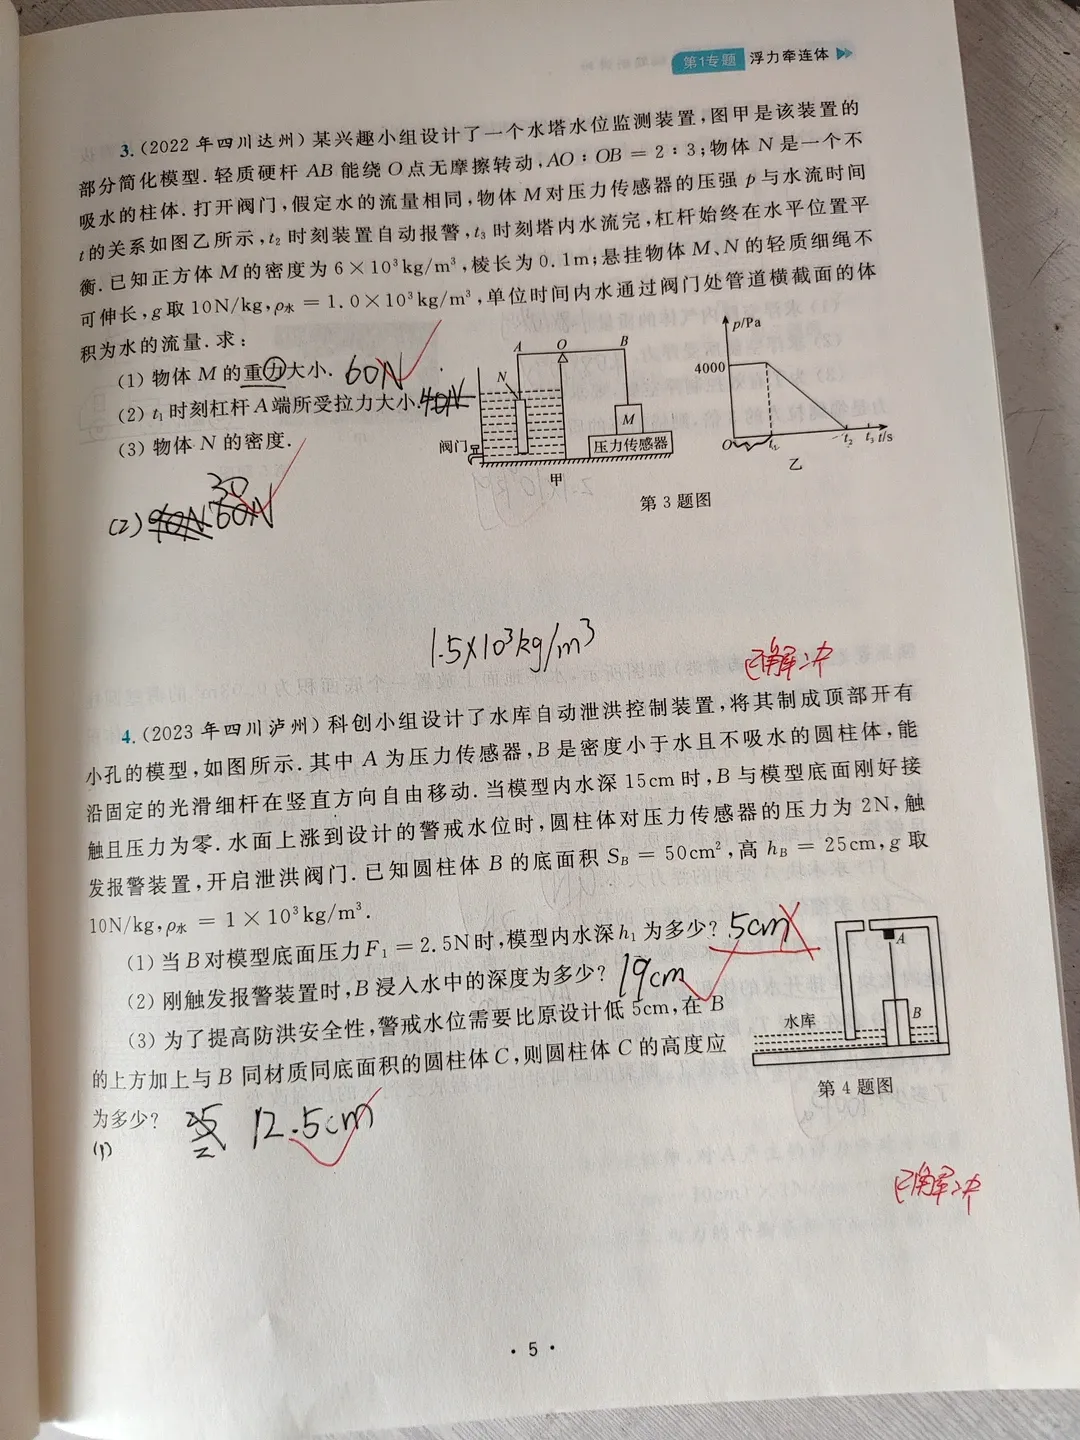 第1专题 浮力牵连体
3.(2022年四川达州)某兴趣小组设计了一个水塔水位监测装置,图甲是该装置的
部分简化模型.轻质硬杆AB能绕O点无摩擦转动,AO:OB=2:3;物体N是一个不
吸水的柱体.打开阀门,假定水的流量相同,物体M对压力传感器的压强p与水流时间
t的关系如图乙所示,t₂时刻装置自动报警,t₃时刻塔内水流完,杠杆始终在水平位置平
衡.已知正方体M的密度为6×10³kg/m³,棱长为0.1m;悬挂物体M、N的轻质细绳不
可伸长,g取10N/kg,ρ水=1.0×10³kg/m³,单位时间内水通过阀门处管道横截面的体
积为水的流量.求:
(1)物体M的重力大小. 60N
(2)t₁时刻杠杆A端所受拉力大小. 40N
(3)物体N的密度.
A O B
N
M
阀门
压力传感器
甲
p/Pa
4000
O t₁ t₂ t₃ t/s
乙
第3题图
30
(2) 90N 60N
1.5×10³kg/m³
已解决
4.(2023年四川泸州)科创小组设计了水库自动泄洪控制装置,将其制成顶部开有
小孔的模型,如图所示.其中A为压力传感器,B是密度小于水且不吸水的圆柱体,能
沿固定的光滑细杆在竖直方向自由移动.当模型内水深15cm时,B与模型底面刚好接
触且压力为零.水面上涨到设计的警戒水位时,圆柱体对压力传感器的压力为2N,触
发报警装置,开启泄洪阀门.已知圆柱体B的底面积S_B=50cm²,高h_B=25cm,g取
10N/kg,ρ水=1×10³kg/m³.
(1)当B对模型底面压力F₁=2.5N时,模型内水深h₁为多少? 5cm
(2)刚触发报警装置时,B浸入水中的深度为多少? 19cm
(3)为了提高防洪安全性,警戒水位需要比原设计低5cm,在B
的上方加上与B同材质同底面积的圆柱体C,则圆柱体C的高度应
为多少? 12.5cm
(1)
A
B
水库
第4题图
已解决
·5·